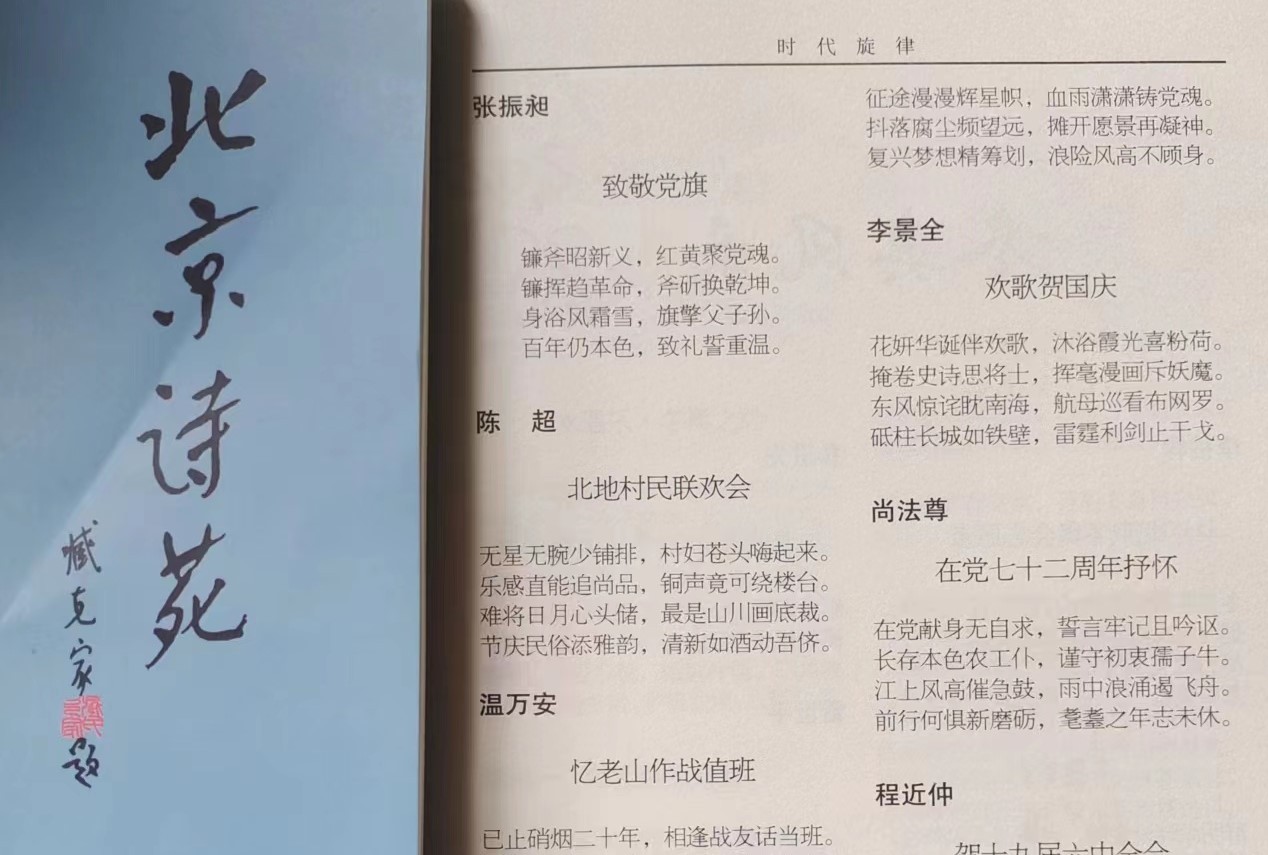 北京诗苑
臧克家
题
时代旋律
张振昶
致敬党旗
镰斧昭新义，红黄聚党魂。
镰挥趋革命，斧斫换乾坤。
身浴风霜雪，旗擎父子孙。
百年仍本色，致礼誓重温。
陈 超
北地村民联欢会
无星无腕少铺排，村妇苍头嗨起来。
乐感直能追尚品，铜声竟可绕楼台。
难将日月心头储，最是山川画底裁。
节庆民俗添雅韵，清新如酒动吾侪。
温万安
忆老山作战值班
已止硝烟二十年，相逢战友话当班。
征途漫漫辉星帜，血雨潇潇铸党魂。
抖落腐尘频望远，摊开愿景再凝神。
复兴梦想精筹划，浪险风高不顾身。
李景全
欢歌贺国庆
花妍华诞伴欢歌，沐浴霞光喜粉荷。
掩卷史诗思将士，挥毫漫画斥妖魔。
东风惊诧眈南海，航母巡看布网罗。
砥柱长城如铁壁，雷霆利剑止干戈。
尚法尊
在党七十二周年抒怀
在党献身无自求，誓言牢记且吟讴。
长存本色农工仆，谨守初衷孺子牛。
江上风高催急鼓，雨中浪涌遏飞舟。
前行何惧新磨砺，耄耋之年志未休。
程近仲
贺十九届六中全会